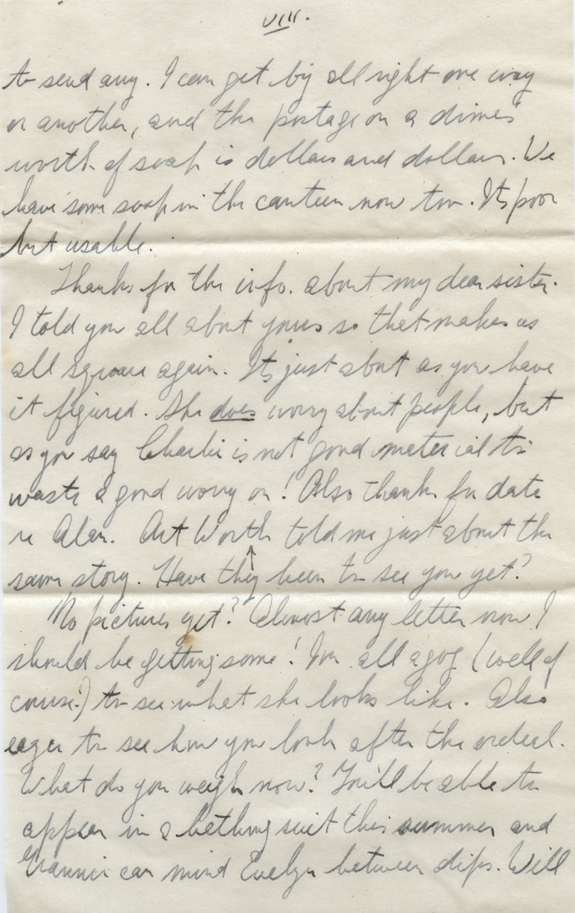 VIII.
to send any. I can get by all right one way
or another, and the postage on a dimes
worth of soap is dollars and dollars. We
have some soap in the canteen now too. Its poor
but usable.
Thanks for the info. about my dear sister.
I told you all about yours so that makes us
all square again. Its just about as you have
it figured. She does worry about people, but
as you say Charlie is not good material to
waste a good worry on! Also thanks for data
re Alan. Art Worth told me just about the
same story. Have they been to see you yet?
No pictures yet? Almost any letter now I
should be getting some! Im all agog (well of
course!) to see what she looks like. Also
eager to see how you look after the ordeal.
What do you weigh now? You'll be able to
appear in a bathing suit this summer and
can mind Evelyn between dips. Will